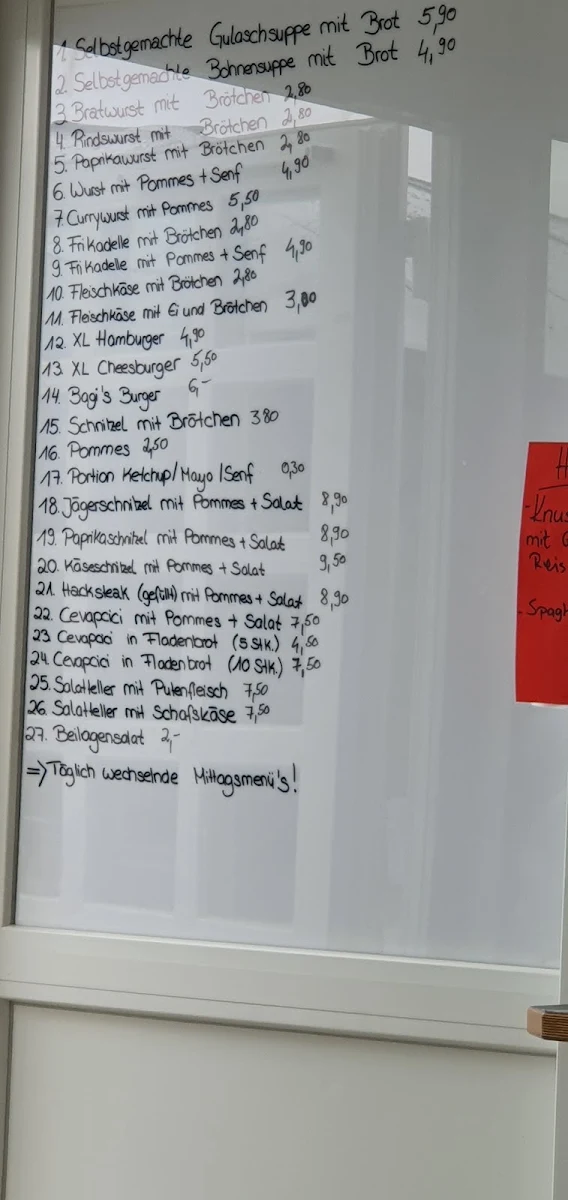 1. Selbstgemachte Gulaschsuppe mit Brot 5,90
2. Selbstgemachte Bohnensuppe mit Brot 4,90
3 Bratwurst mit Brötchen 2,80
4. Rindswurst mit Brötchen 2,80
5. Paprikawurst mit Brötchen 2,80
6. Wurst mit Pommes + Senf 4,90
7. Currywurst mit Pommes 5,50
8. Frikadelle mit Brötchen 2,80
9. Frikadelle mit Pommes + Senf 4,90
10. Fleischkäse mit Brötchen 2,80
11. Fleischkäse mit Ei und Brötchen 3,80
12. XL Hamburger 4,90
13. XL Cheesburger 5,50
14. Bagi's Burger 6,-
15. Schnitzel mit Brötchen 3 80
16. Pommes 2,50
17. Portion Ketchup/Mayo/Senf 0,30
18. Jägerschnitzel mit Pommes + Salat 8,90
19. Paprikaschnitzel mit Pommes + Salat 8,90
20. Käseschnitzel mit Pommes + Salat 9,50
21. Hacksteak (gefüllt) mit Pommes + Salat 8,90
22. Cevapcici mit Pommes + Salat 7,50
23 Cevapcici in Fladenbrot (5 Stk.) 4,50
24. Cevapcici in Fladenbrot (10 Stk.) 7,50
25. Salatteller mit Putenfleisch 7,50
26. Salatteller mit Schafskäse 7,50
27. Beilagensalat 2,-
=> Täglich wechselnde Mittagsmenü's!
H
- Knus
mit
Reis
- Spagh